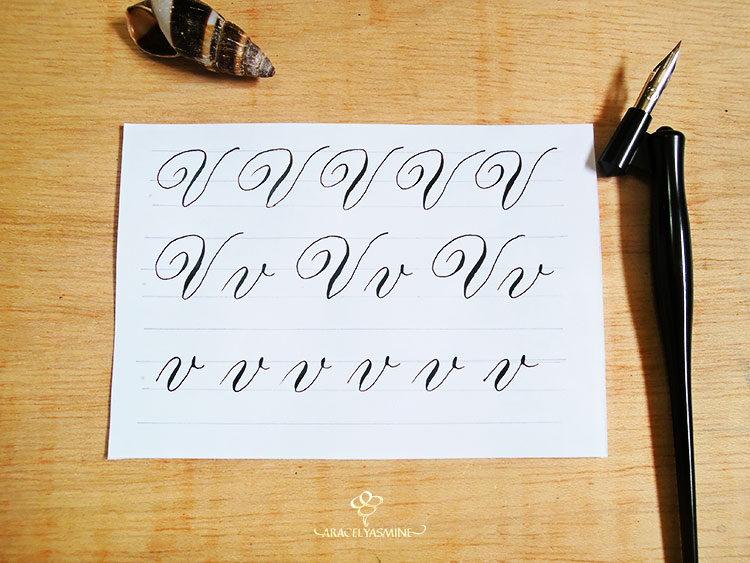 V V V V V
V v V v V v
v v v v v v
ARACELYASMINE